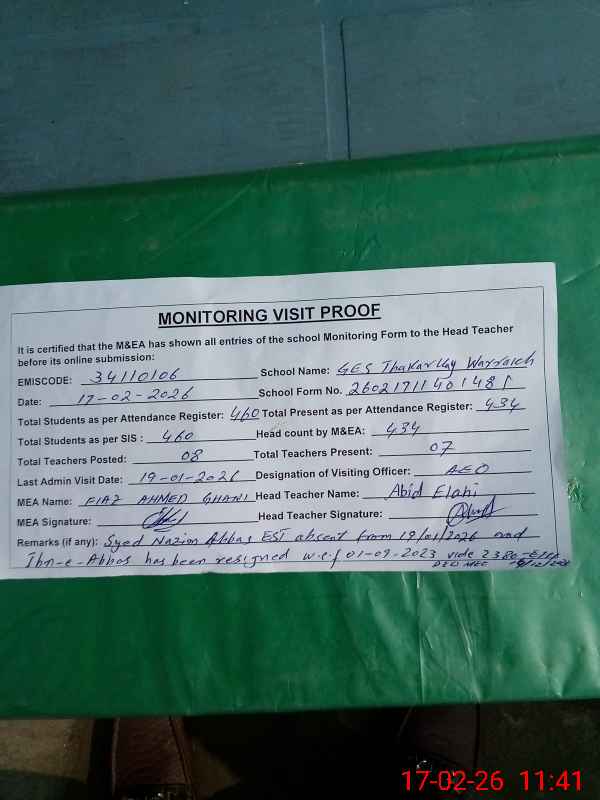 MONITORING VISIT PROOF
It is certified that the M&EA has shown all entries of the school Monitoring Form to the Head Teacher
before its online submission:
EMISCODE: 34110106 School Name: GES Thakar Warraich
Date: 17-02-2026 School Form No. 2602171140148
Total Students as per Attendance Register: 460 Total Present as per Attendance Register: 434
Total Students as per SIS : 460 Head count by M&EA: 434
Total Teachers Posted: 08 Total Teachers Present: 07
Last Admin Visit Date: 19-01-2026 Designation of Visiting Officer: AEO
MEA Name: FIAZ AHMED GHANI Head Teacher Name: Abid Elahi
MEA Signature: Head Teacher Signature:
Remarks (if any): Syed Nazim Abbas EST absent from 19/01/2026 and
Ibn-e-Abbas has been resigned w.e.f 01-09-2023 vide 2380
DEO MEE
17-02-26 11:41